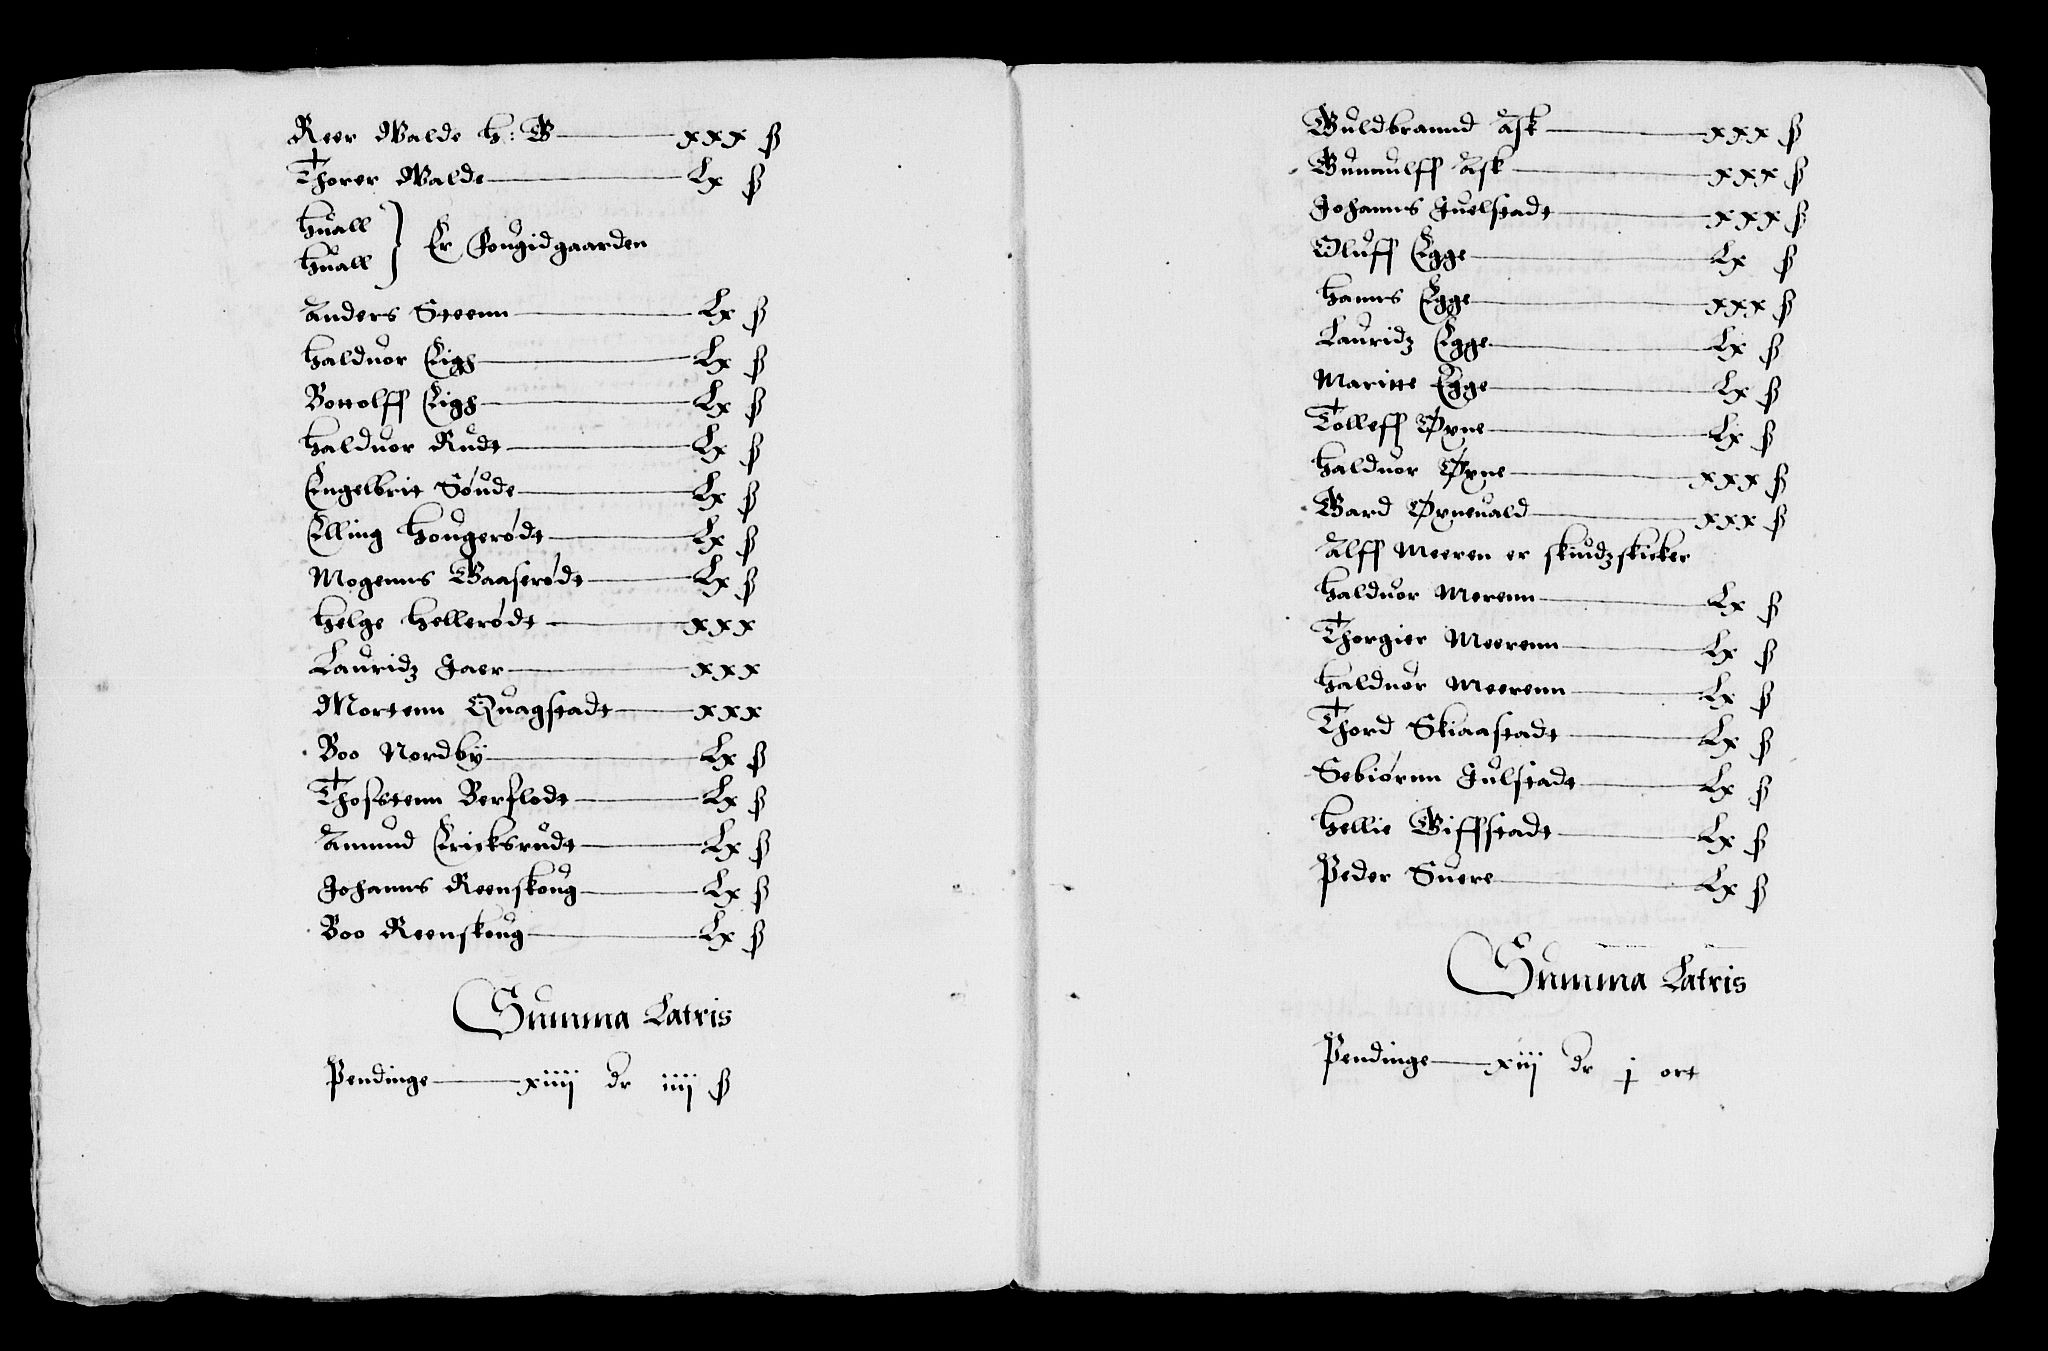 Reer Walde h: G xxx ß
Thorer Walde Lx ß
Huall
Huall } Er Fougidgaarden
Anders Steenn Lx ß
Halduor Eigh Lx ß
Bottolff Eigh Lx ß
Halduor Rudt Lx ß
Engelbrit Sóude Lx ß
Elling Hougerødt Lx ß
Mogenns Gaaserødt Lx ß
Helge Hellerødt xxx
Lauridz Jaer xxx
Mortenn Quagstadt xxx
Boo Nordbÿ Lx ß
Thosstenn Berflodt Lx ß
Amund Ericksrudt Lx ß
Johanns Reenskoug Lx ß
Boo Reenskoug Lx ß
Summa Latris
Pendinge xiiij dr iiij ß
Guldbrannd Ask xxx ß
Gunnulff Ask xxx ß
Johanns Juelstadt xxx ß
Oluff Egge Lx ß
Hanns Egge xxx ß
Lauridz Egge Lx ß
Maritte Egge Lx ß
Tolleff Øyne Lx ß
Halduor Øyne xxx ß
Gard Øyneuald xxx ß
Alff Meeren er skiudzskicker
Halduor Merenn Lx ß
Thorgier Meerenn Lx ß
Halduor Meerenn Lx ß
Thord Skiaastadt Lx ß
Sebiørnn Julstadt Lx ß
Hellie Giffstadt Lx ß
Peder Suere Lx ß
Summa Latris
Pendinge xiij dr j ort